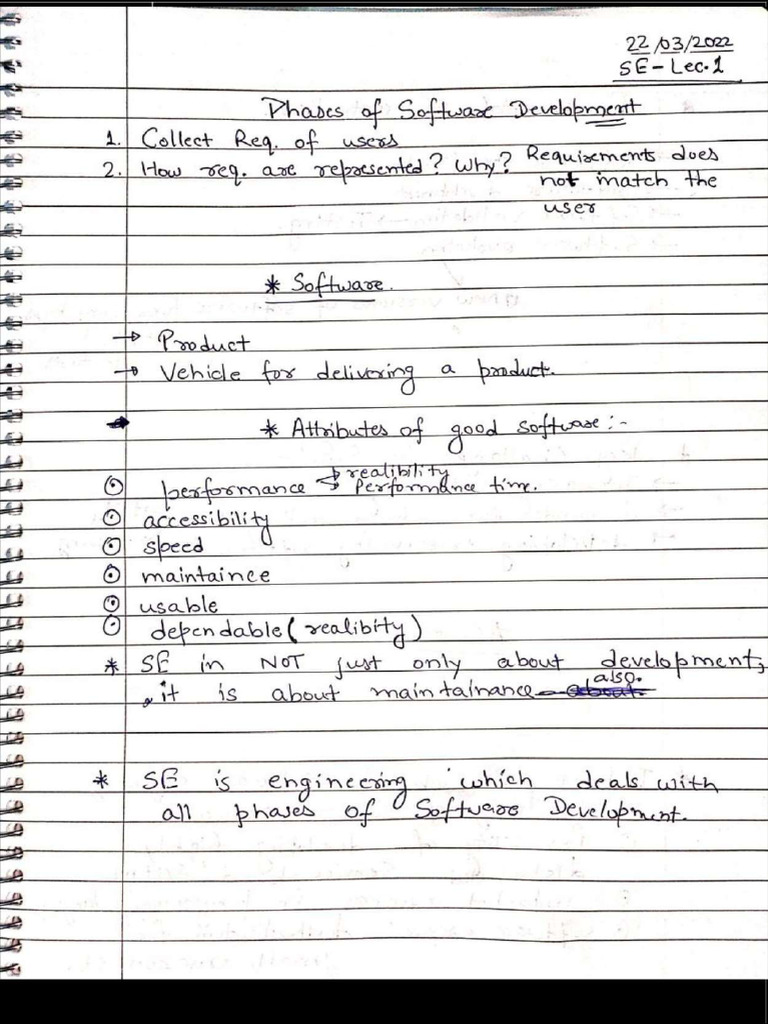 22/03/2022
SE-Lec.1
Phases of Software Development
1. Collect Req. of users
2. How req. are represented? Why? Requirements does
not match the
user
* Software.
→ Product
→ Vehicle for delivering a product.
* Attributes of good software:-
performance → realibility
→ Performance time.
accessibility
speed
maintaince
usable
dependable (realibity)
* SE in NOT just only about development,
it is about maintainance also.
* SE is engineering which deals with
all phases of Software Development.